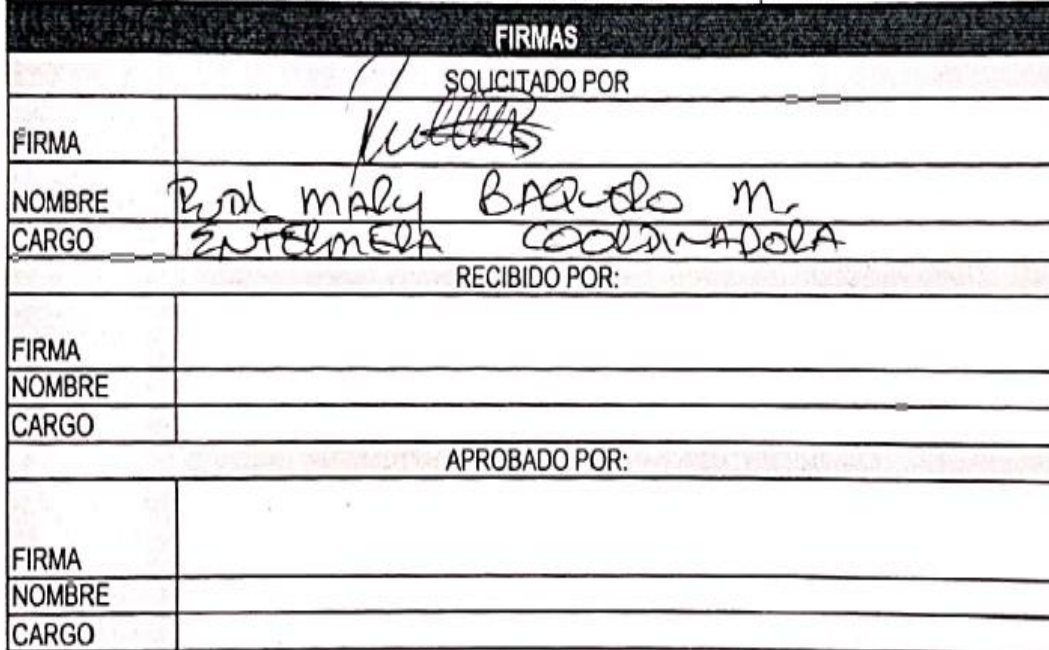 FIRMAS
SOLICITADO POR
FIRMA
NOMBRE MARY BAQUERO M.
CARGO ENFERMERA COORDINADORA
RECIBIDO POR:
FIRMA
NOMBRE
CARGO
APROBADO POR:
FIRMA
NOMBRE
CARGO